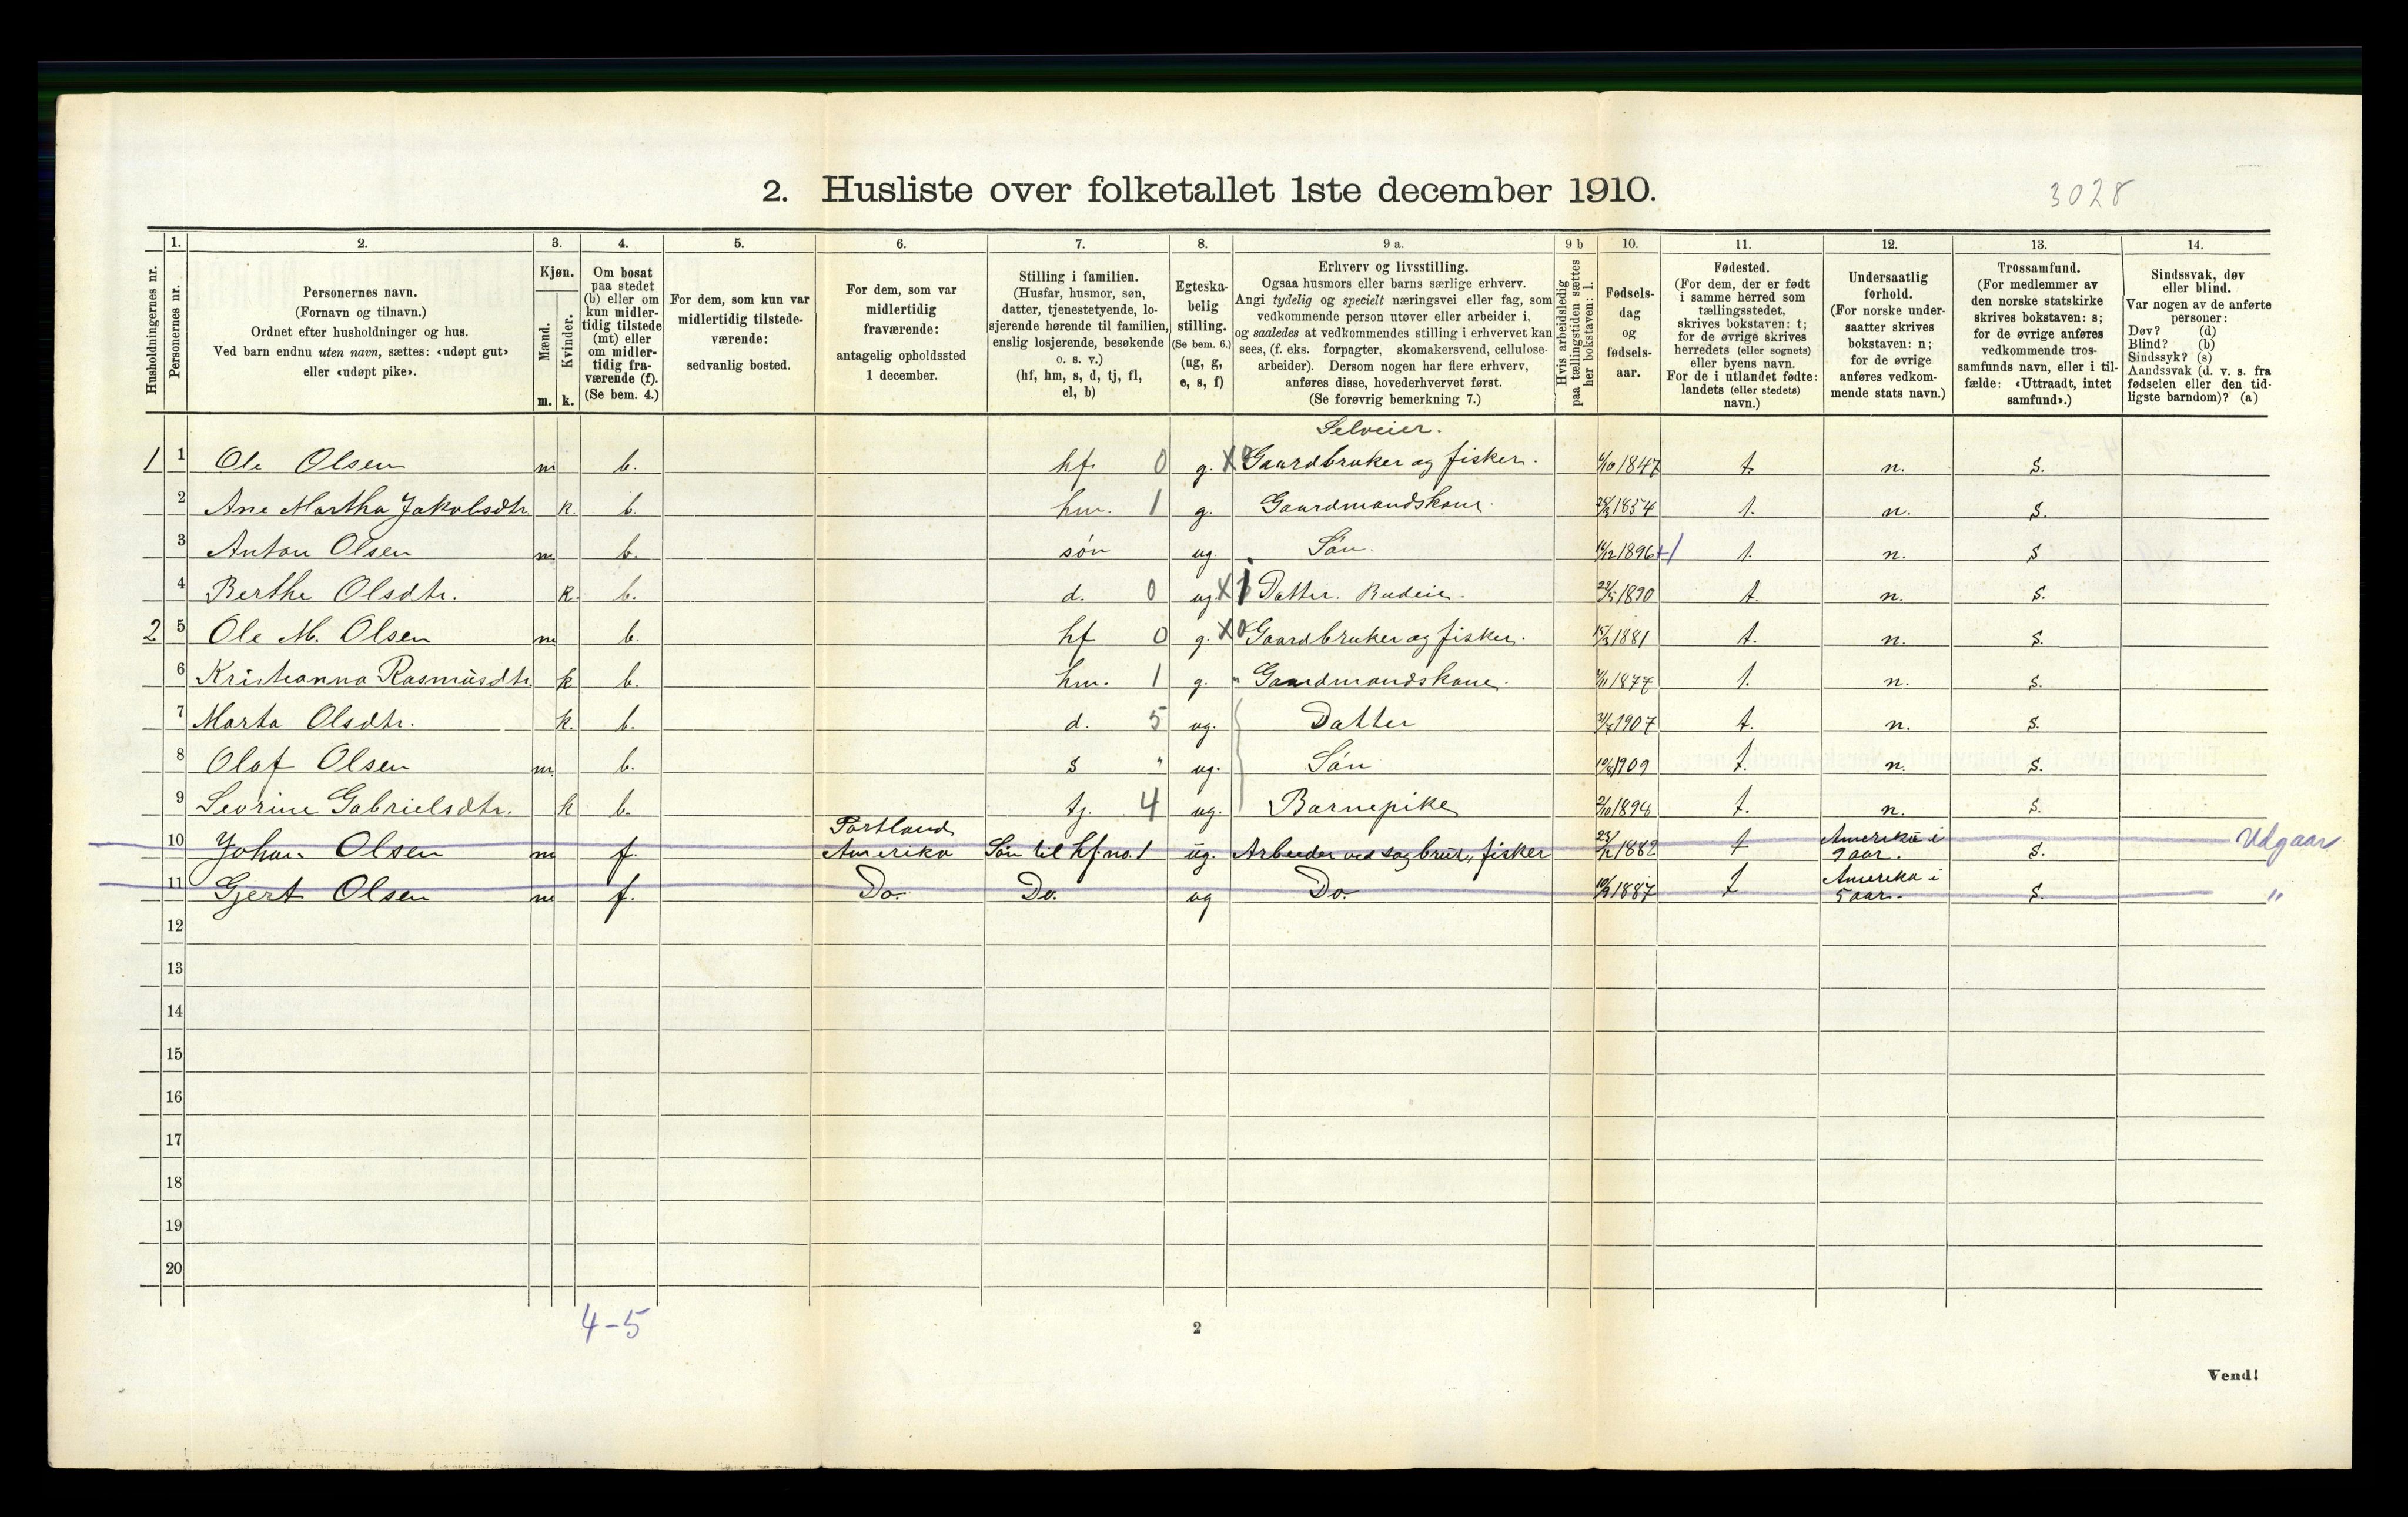 2. Husliste over folketallet 1ste december 1910.
3028
Husholdningernes nr.
1.
Personernes nr.
2.
Personernes navn.
(Fornavn og tilnavn.)
Ordnet efter husholdninger og hus.
Ved barn endnu uten navn, sættes: «udøpt gut»
eller «udøpt pike».
3.
Kjøn.
Mænd.
Kvinder.
m. k.
4.
Om bosat
paa stedet
(b) eller om
kun midler-
tidig tilstede
(mt) eller
om midler-
tidig fra-
værende (f).
(Se bem. 4.)
5.
For dem, som kun var
midlertidig tilstede-
værende:
sedvanlig bosted.
6.
For dem, som var
midlertidig
fraværende:
antagelig opholdssted
1 december.
7.
Stilling i familien.
(Husfar, husmor, søn,
datter, tjenestetyende, lo-
sjerende hørende til familien,
enslig losjerende, besøkende
o. s. v.)
(hf, hm, s, d, tj, fl,
el, b)
8.
Egteska-
belig
stilling.
(Se bem. 6.)
(ug, g,
e, s, f)
9 a.
Erhverv og livsstilling.
Ogsaa husmors eller barns særlige erhverv.
Angi tydelig og specielt næringsvei eller fag, som
vedkommende person utøver eller arbeider i,
og saaledes at vedkommendes stilling i erhvervet kan
sees, (f. eks. forpagter, skomakersvend, cellulose-
arbeider). Dersom nogen har flere erhverv,
anføres disse, hovederhvervet først.
(Se forøvrig bemerkning 7.)
9 b
Hvis arbeidsledig
paa tællingstiden sættes
her bokstaven: l.
10.
Fødsels-
dag
og
fødsels-
aar.
11.
Fødested.
(For dem, der er født
i samme herred som
tællingsstedet,
skrives bokstaven: t;
for de øvrige skrives
herredets (eller sognets)
eller byens navn.
For de i utlandet fødte:
landets (eller stedets)
navn.)
12.
Undersaatlig
forhold.
(For norske under-
saatter skrives
bokstaven: n;
for de øvrige
anføres vedkom-
mende stats navn.)
13.
Trossamfund.
(For medlemmer av
den norske statskirke
skrives bokstaven: s;
for de øvrige anføres
vedkommende tros-
samfunds navn, eller i til-
fælde: «Uttraadt, intet
samfund».)
14.
Sindssvak, døv
eller blind.
Var nogen av de anførte
personer:
Døv? (d)
Blind? (b)
Sindssyk? (s)
Aandssvak (d. v. s. fra
fødselen eller den tid-
ligste barndom)? (a)
Selveier.
1 1 Ole Olsen m b. hf. 0 g. X Gaardbruker og fisker. 1847 t. n. s.
2 Ane Martha Jakobsdtr. k. b. hm. 1 g. Gaardmandskone. 1854 t. n. s.
3 Anton Olsen m. b. søn ug. Søn. 1896 t. n. s
4 Berthe Olsdtr. k. b. d. 0 ug. X Datter. Budeie. 1890 t. n. s.
2 5 Ole M. Olsen m b. hf 0 g. X Gaardbruker og fisker. 15/3 1881 t. n. s.
6 Kristianna Rasmusdtr. k b. hm. 1 g. " Gaardmandskone. 1877 t. n. s.
7 Marta Olsdtr. k. b. d. 5 ug. Datter 1907 t. n. s.
8 Olaf Olsen m. b. s " ug. Søn 1909 t. n. s.
9 Sevrine Gabrielsdtr. k b. tj. 4 ug. Barnepike 1894 t. n. s.
Portland Amerika i
10 Johan Olsen m f. Amerika Søn til hf. no. 1 ug. Arbeider ved sagbruk, fisker 1882 t 9 aar. s. Udgaar
Amerika i
11 Gjert Olsen m f. Do. Do. ug Do. 1887 t 5 aar. s. "
12
13
14
15
16
17
18
19
20
4-5
2
Vend!